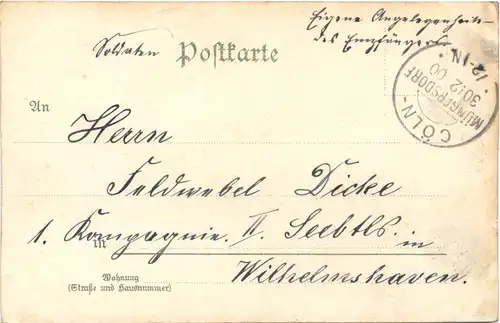 Eigene Angelegenheit
des Empfängers
Soldaten Postkarte
CÖLN-
MÜNGERSDORF
30 12 00
12-1N.
An
Herrn
Feldwebel Dicke
1. Kompagnie. II. Seebtls. in
in
Wilhelmshaven.
Wohnung
(Straße und Hausnummer)